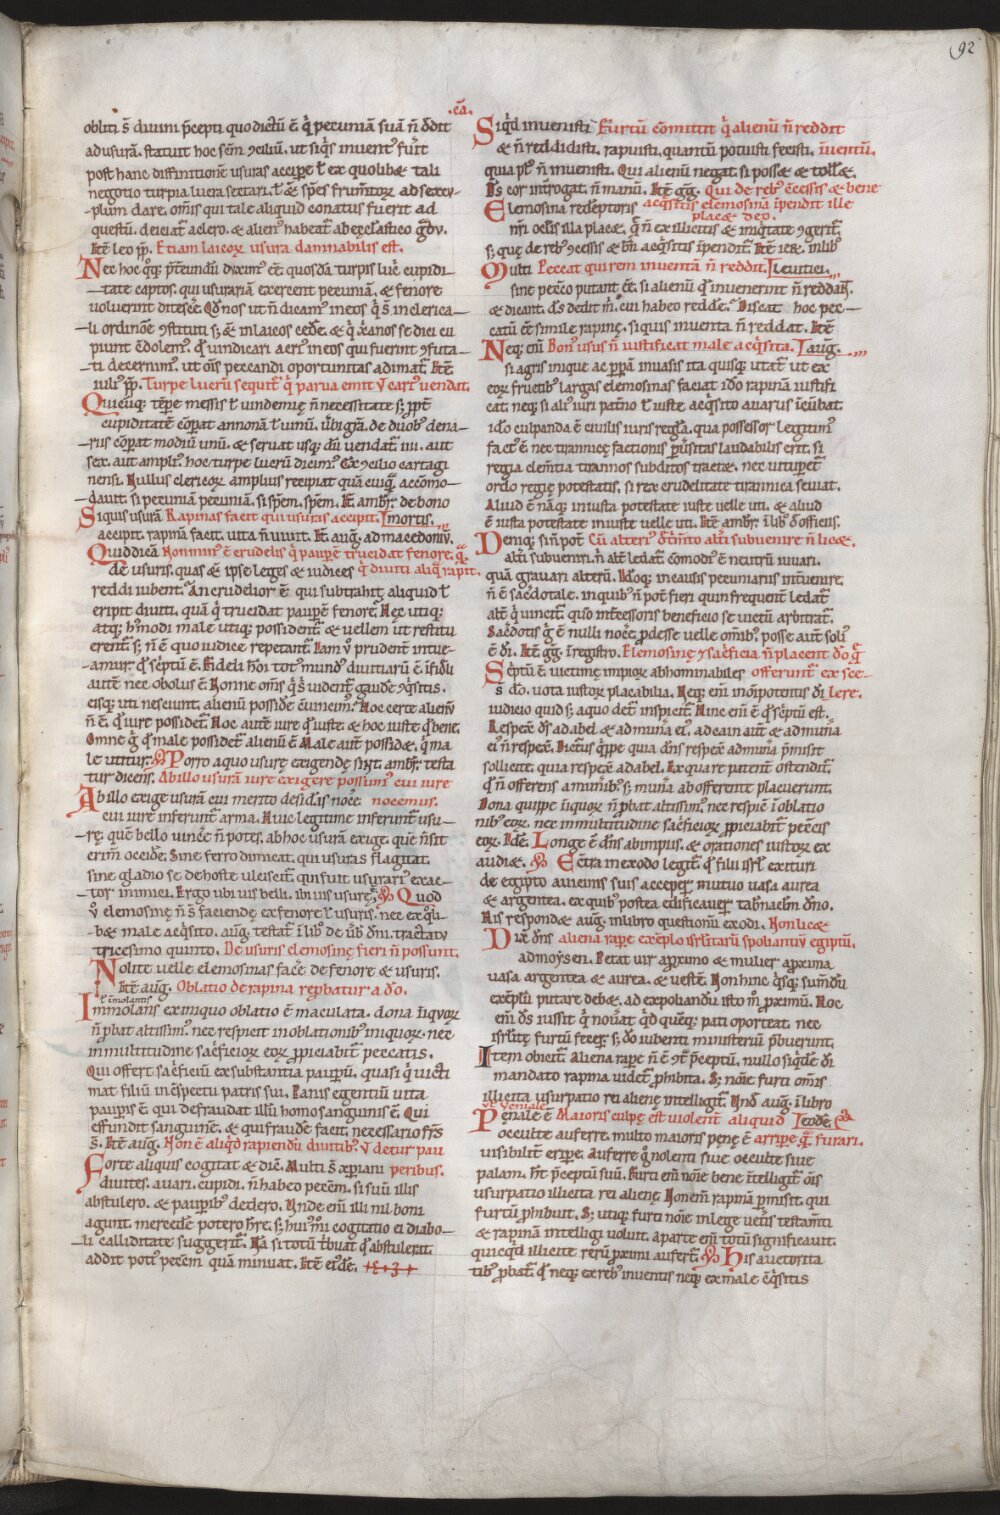 92
.cā.
obliti s̄ diuini p̄cepti quo dictū ē q̇ pecuniā suā n̄ dedit
ad usurā. statuit hoc scm̄ ꝯciliū. ut siq̇s inuent᷒ fuīt
post hanc diffinitionē usuras accipe ł ex quolibꝫ tali
negotio turpia lucra sectari. ł
plum dare. om̄is qui tale aliquid conatus fuerit ad
questū. deiciat᷑ a clero. & alien᷒ habeat᷑ ab ecclastico gdu.
Itē leo pp̄. Etiam laicoꝝ usura damnabilis est.
Nec hoc qꝫ
tate captos. qui usurariā exercent pecuniā. & fenore
uoluerint ditescē. Qd̄ nos ut n̄ dicam᷒ in eos q̇ s̄ in clerica
li ordinōne ꝯstituti sꝫ & in laicos cadē. & q̇ xp̄ianos se dici cu
piunt ꝯdolem᷒. q̄ uindicari acri᷒ in eos qui fuerint ꝯfuta
ti decernim᷒. ut ois peccandi oportunitas adimat᷑. Itē
iuli᷒ pp̄. Turpe lucrū sequit᷑ q̇ parua emit ut cari᷒ uendat.
Quicūqꝫ tēpe messis ł uindemię n̄ necessitate sꝫ ꝓpt̄
cupiditatē cōparat annonā ł uinū. ubi gra. de duob᷒ dena
rius cōparat modiū unū. & seruat usqꝫ dū uendat᷑ iiii. aut
sex. aut ampli᷒. hoc turpe lucrū dicim᷒. Ex ꝯcilio cartagi
nensi. Nullus clericoꝝ amplius recipiat quā cuiq̄ accōmo
dauit. si pecuniā pecuniā. si spem̄. spem̄. Itē ambr̄. de bono
Siquis usurā Rapinas facit qui usuras accipit. mortis.
accipit. rapinā facit. uita n̄ uiuit. It. auḡ. ad macedoniū.
Quid dicā Non min᷒ ē crudelis q̇ paupē trucidat fenore. q̄
de usuris. quas & ipse leges & iudices q̇ diuiti aliq̇d rapit.
reddi iubent. An crudelior ē qui subtrahit aliquid ł
eripit diuiti. quā q̇ trucidat paupē fenore. Hęc utiqꝫ
atqꝫ h᷒modi male utiqꝫ possident᷑ & uellem ut restitu
erent᷑ sꝫ n̄ ē quo iudice repetant᷑. Iam ū prudent̄ intue
amur. q̄ sc̄ptū ē. Fideli hōi tot᷒ mund᷒ diuitiarū ē. īfideli
autē nec obolus ē. Nonne om̄s q̇ s̄ uident᷑ gaudē ꝯq̇sitis.
eisqꝫ uti nesciunt. alienū possidē cuincim᷒. Hoc certe alienū
n̄ ē. q̄ iure possidet᷑. Hoc autē iure q̄ iuste. & hoc iuste q̄ bene.
Omne g̊ q̄ male possidet᷑ alienū ē. Male aut̄ possidꝫ. q̇ ma
le utitur. Porro a quo usurę exigendę sint. ambr̄. testa
tur dicens. Ab illo usurā iure exigere possum᷒ cui iure
Ab illo exige usurā cui merito desid̄as nocē. nocemus.
cui iure inferunt᷑ arma. Huic legitime inferunt᷑ usu
rę. quē bello uincē n̄ potes. ab hoc usurā exige. quē n̄ sit
crim̄ occidē. Sine ferro dimicat. qui usuras flagitat.
sine gladio se de hoste ulciscit᷑. qui fuit usurari᷒ exac
tor inimici. Ergo ubi ius belli. ibi ius usurę. Quod
ū elemosinę n̄ s̄ faciendę ex fenore ł usuris. nec ex q̇li
bꝫ male acq̇sito. auḡ. testat᷑ ī lib̄. de ūb̄ dn̄i. tractatu
tricesimo quinto. De usuris elemosine fieri n̄ possunt.
Nolite uelle elemosinas facē de fenore & usuris.
Itē auḡ. Oblatio de rapina reprobatur a do.
ł īmolantis
Immolans ex iniquo oblatio ē maculata. dona īiquoꝝ
n̄ ꝓbat altissim᷒. nec respicit in oblationib᷒ iniquoꝝ. nec
in multitudine sacrificioꝝ eoꝝ ꝓpiciabit᷑ peccatis.
Qui offert sacrificiū ex substantia paupū. quasi q̇ uicti
mat filiū in ꝯspectu patris sui. Panis egentiū uita
paupis ē. qui defraudat illū homo sanguinis ē. Qui
effundit sanguinē. & qui fraudē facit. necessario fr̄s
s̄. Itē auḡ. Non ē aliq̇d rapiendū diuitib᷒ ut detur pau
Forte aliquis cogitat & dic̄. Multi s̄ xp̄iani peribus.
diuites. auari. cupidi. n̄ habeo peccm̄. si suū illis
abstulero. & paupib᷒ dedero. Unde eni̅ illi nil boni
agunt. mercedē potero hr̄e. sꝫ hui᷒mi cogitatio ei diabo
li calliditate suggerit᷑. Na̅ si totū tbuat q̄ abstulerat.
addit poti᷒ peccm̄ quā minuat. Itē ei᷒dē.
Siq̇d inuenisti Furtū cōmittit q̇ alienū n̄ reddit
& n̄ reddidisti. rapuisti. quantū potuisti fecisti. īuentū.
quia pl᷒ n̄ inuenisti. Qui alienū negat. si possꝫ & tollꝫ.
Ds̄ cor int̄rogat. n̄ manū. Itē gḡ. Qui de reb᷒ ꝯcessis & bene
Elemosina redēptoris acq̇sitis elemosinā īpendit ille
placꝫ deo.
nr̄i oculis illa placꝫ. q̄ n̄ ex illicitis & iniq̇tate ꝯgerit᷑.
sꝫ quę de reb᷒ ꝯcessis & bn̄ acq̇sitis īpendit᷑. Itē ieꝝ. in lib᷒
Multi Peccat qui rem inuentā n̄ reddit. leuitici.
sine pecc̄o putant ēē. si alienū q̄ inuenerint n̄ reddant.
& dicant. ds̄ dedit m̄. cui habeo reddē. Discat hoc pec
catū ēē simile rapinę. si quis inuenta n̄ reddat. Itē
Neqꝫ eni̅ Bon᷒ usus n̄ iustificat male acq̇sita. auḡ.
si agris inique ac perperā inuasis ita quisqꝫ utat᷑ ut ex
eoꝝ fructib᷒ largas elemosinas faciat ido rapinā iustifi
cat. neqꝫ si ali᷒ iuri patn̄o ł iuste acq̇sito auarus icūbat
ido culpanda ē ciuilis iuris regla. qua possessor legitim᷒
fact᷒ ē. nec tirannicę factionis puersitas laudabilis erit. si
regia clem̄tia tirannos subditos tractꝫ. nec uituperet᷑
ordo regię potestatis. si rex crudelitate tirannica seuiat.
Aliud ē nāqꝫ iniusta potestate iuste uelle uti. & aliud
ē iusta potestate iniuste uelle uti. Itē ambr̄. ī lib̄. de officiis.
Deniqꝫ si n̄ pot̄ Cū alteri᷒ detm̄to alt̄i subuenire n̄ licꝫ.
alt̄i subueniri. n̄ alt̄ ledat᷑. cōmodi᷒ ē neutrū iuuari.
quā grauari alterū. Idoqꝫ in causis pecuniariis int̄uenire
n̄ ē sacerdotale. in quib᷒ n̄ pot̄ fieri quin frequent̄ ledat᷑
alt̄ q̇ uincit᷑. quo int̄cessoris beneficio se uictū arbitrat᷑.
Sacerdotis g̊ ē nulli nocē. ꝓdesse uelle om̄ib᷒. posse aut̄ soli᷒
ē di. Itē gḡ. ī registro. Elemosinę & sacrificia n̄ placent do q̄
Sc̄ptū ē uictimę impioꝝ abhominabiles offerunt᷑ ex sce
s̄ do. uota iustoꝝ placabilia. Neqꝫ eni̅ in om̄ipotentis di lere.
iudicio quid sꝫ a quo det᷑ inspicit᷑. Hinc eni̅ ē q̄ sc̄ptū est.
Respexit ds̄ ad abel & ad munera ei᷒. ad cain aut̄ & ad munera
ei᷒ n̄ respexit. Dictur᷒ q̇ppe quia dn̄s respexit ad munera p̄misit
sollicite. quia respexit ad abel. Ex qua re patent̄ ostendit᷑
q̄ n̄ offerens a munerib᷒ sꝫ munera ab offerente placuerunt.
Dona quippe iniquoꝝ n̄ ꝓbat altissim᷒. nec respicit ī oblatio
nib᷒ eoꝝ. nec in multitudine sacrificioꝝ ꝓpiciabit᷑ peccatis
eoꝝ. Idē. Longe ē dn̄s ab impiis. & orationes iustoꝝ ex
audiꝫ. Ecōtra in exodo legit᷑. q̄ filii isrl̄ exituri
de egipto a uicinis suis accepert̄ mutuo uasa aurea
& argentea. ex quib᷒ postea edificauer̄ tab̄nacln̄ dn̄o.
His respondꝫ auḡ. in libro questionū exodi. Non licꝫ
Dix̄ dn̄s aliena rapē exēplo isrl̄itarū spoliantiū egiptū.
ad moysen. Petat uir a ꝓximo & mulier a ꝓxima
uasa argentea & aurea. & uestē. Non hinc q̇sqꝫ sumdū
exēplū putare debꝫ. ad expoliandū isto m̄ ꝓximū. Hoc
eni̅ ds̄ iussit q̇ nouat. q̇d quēqꝫ pati oporteat. nec
isrl̄itę furtū fecer̄. sꝫ do iubenti ministeriū p̄buerunt.
Item obicit᷑. Aliena rapē n̄ ē ꝯt̄ p̄ceptū. nullo siq̇dē di
mandato rapina uidet᷑ ꝓhibita. Sꝫ noīe furti om̄is
illicita usurpatio rei alienę intelligit᷑. Unde auḡ. ī libro
ut ueniale
Penale ē Maioris culpę est uiolent̄ aliquid eodē.
occulte auferre. multo maioris penę ē arripe q̄ furari.
uisibilit̄ eripe. Auferre q̇ nolenti siue occulte siue
palam. ht̄ p̄ceptū suū. Furti eni̅ noīe bene itelligit᷑ ois
usurpatio illicita rei alienę. Non eni̅ rapinā p̄misit. qui
furtū ꝓhibuit. Sꝫ utiqꝫ furti noīe in lege uetis testam̄ti
& rapinā intelligi uoluit. a parte eni̅ totū significauit.
quicq̇d illicite rerū ꝓximi aufert᷑. His auctorita
tib᷒ ꝓbat᷑. q̄ neqꝫ ex reb᷒ inuentis neqꝫ ex male ꝯq̇sitis